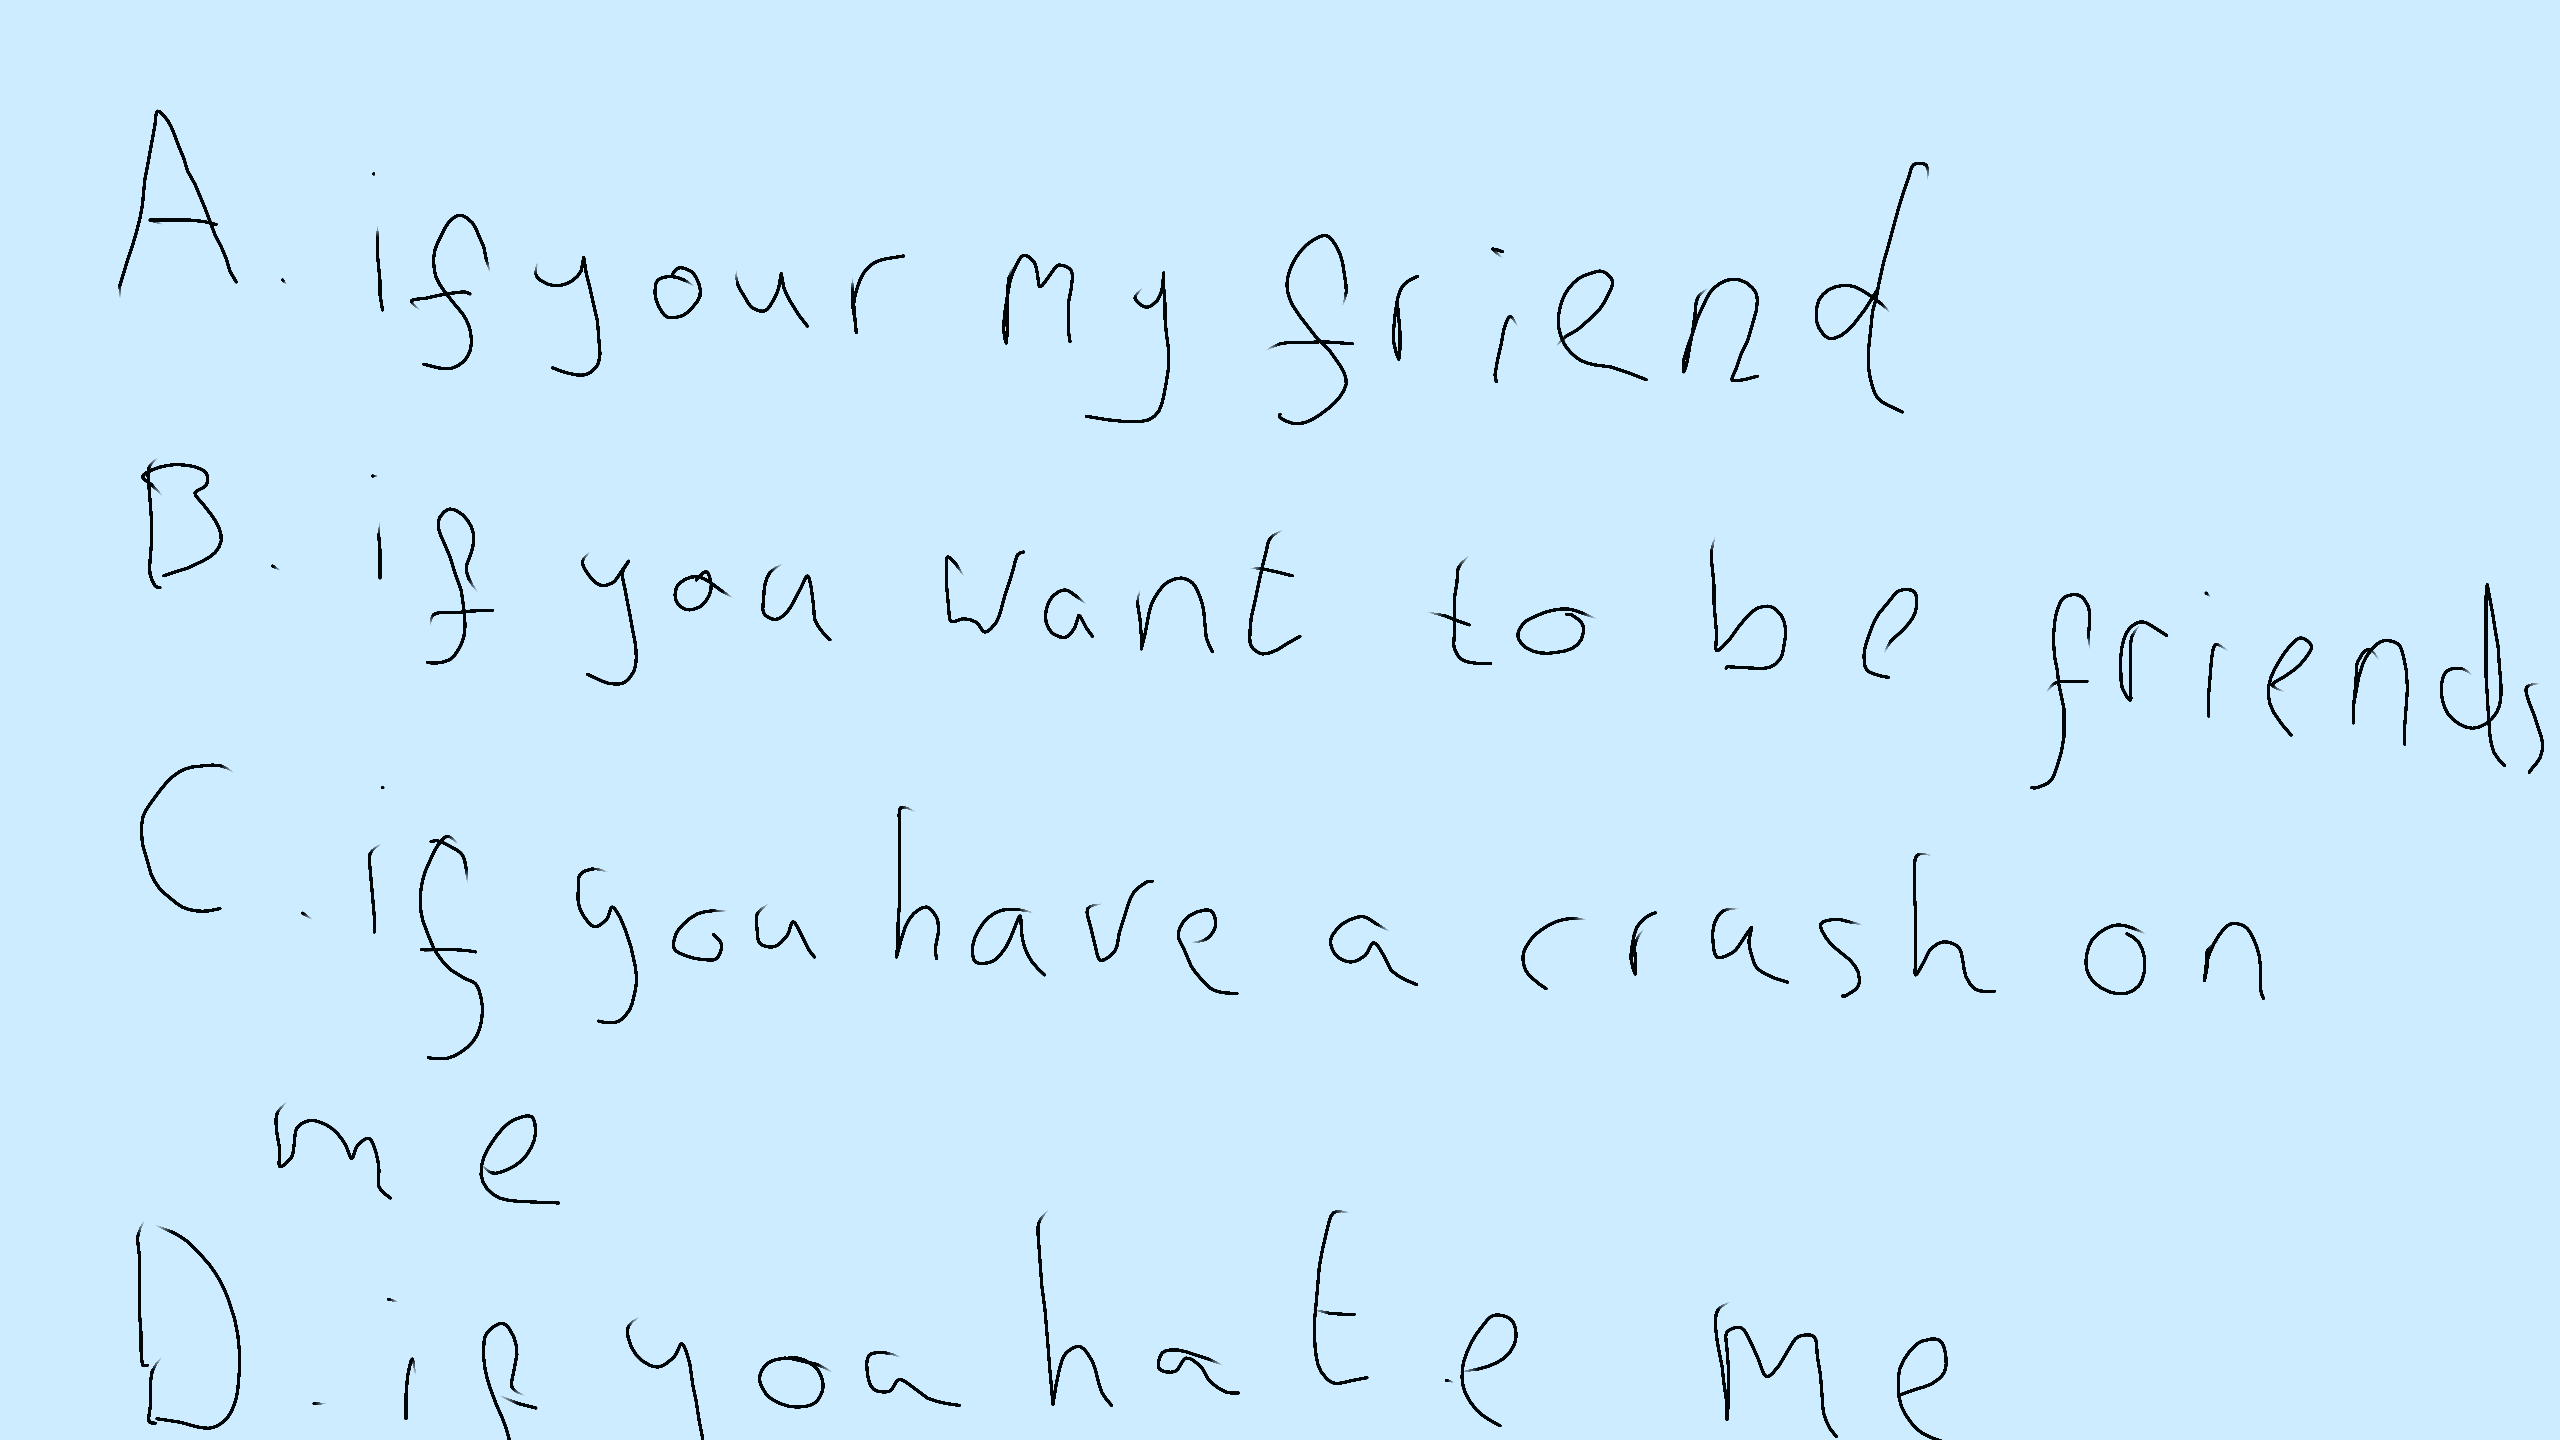 A. if your my friend
B. if you want to be friends
C. if you have a crash on
me
D. if you hate me